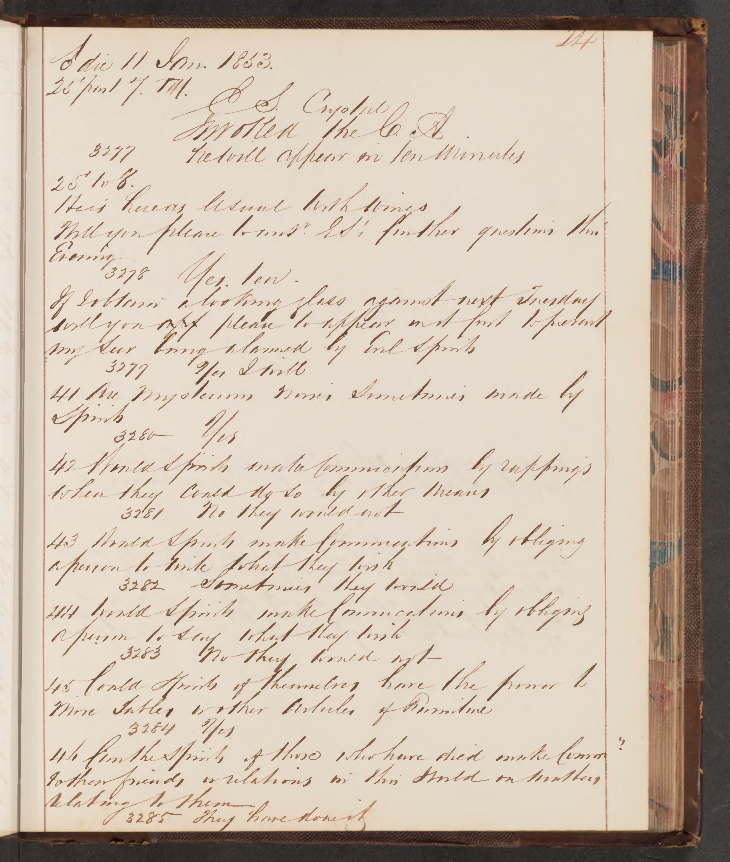 214
die 11 Jan. 1853.
25 past 7. P.M.
E. S. Crystal
Invoked the C. A.
3277 He will appear in ten Minutes
25 to 8.
He is here as Usual with wings
Will you please to ansr. ES's further questions this
Evening
3278 Yes. few.
If I obtain a looking glass against next Tuesday
will you please to appear in it first to prevent
my Seer being alarmed by Evil Spirits
3279 Yes I will
41 Are Mysterious Noises Sometimes made by
Spirits
3280 Yes
42 Would Spirits make Communications by rappings
when they could do so by other means
3281 No they would not
43 Would Spirits make Communications by obliging
a person to write what they wish
3282 Sometimes they would
44 Would Spirits make Communications by obliging
a person to say what they wish
3283 No they would not
45 Could Spirits of themselves have the power to
Move Tables or other Articles of Furniture
3284 Yes
46 Can the Spirits of those who have died make Common
to their friends or relations in this World on matters
relating to them
3285 They have done it
?